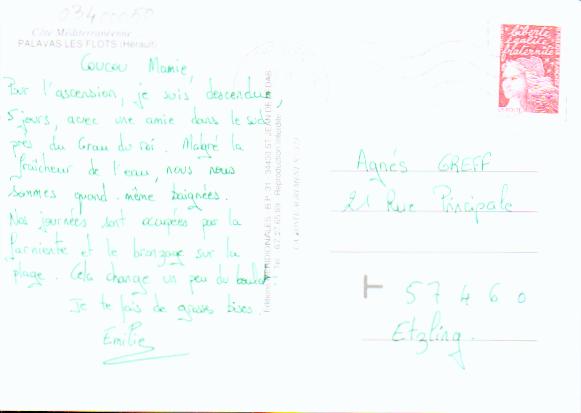 03400050
Côte Méditerranéenne
PALAVAS LES FLOTS (Hérault)
Coucou Mamie,
Pour l'ascension, je suis descendue,
5 jours, avec une amie dans le sud
près du Grau du roi. Malgré la
fraîcheur de l'eau, nous nous
sommes quand même baignées.
Nos journées sont occupées par la
farniente et le bronzage sur la
plage. Cela change un peu du boulot
Je te fais de grosses bises.
Emilie
liberté
égalité
fraternité
LA POSTE
Agnés GREFF
21 Rue Principale
57460
Etzling.